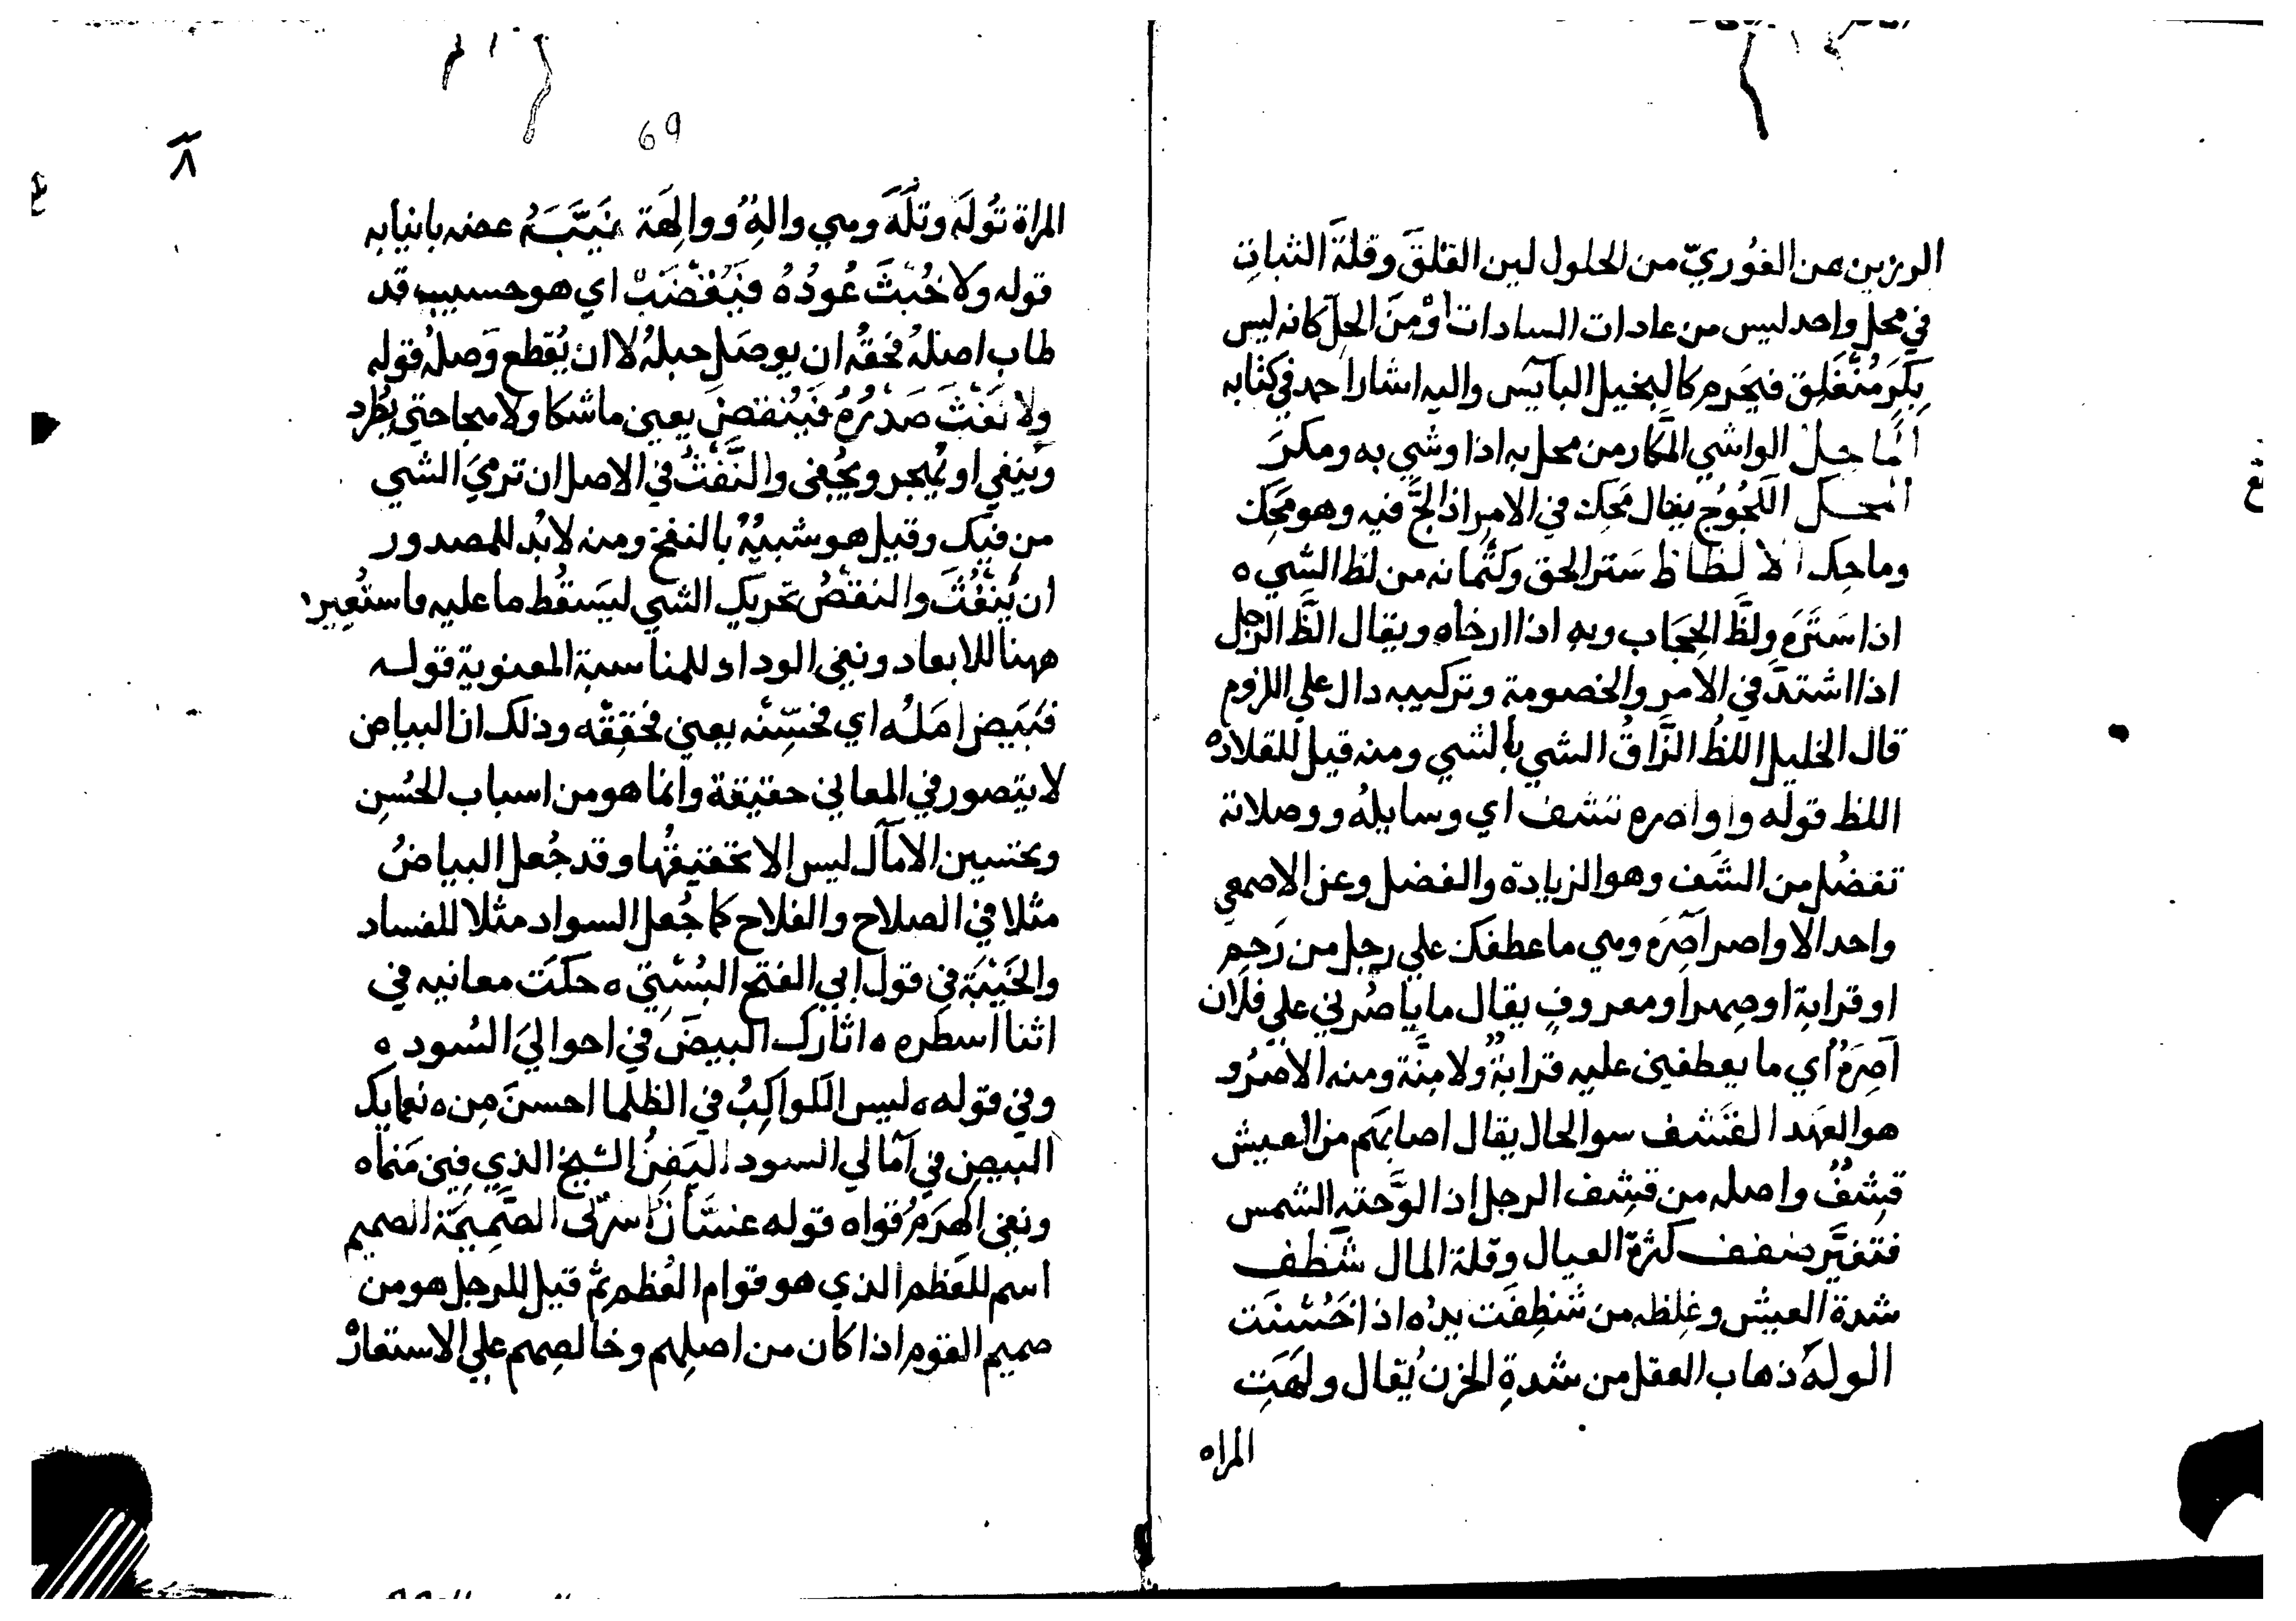 الرزين عن الغُوريّ من الحلول لين القلقَ وقلةَ الثبات
في محل واحد ليس من عادات السادات اوْ مِنَ الحِلّ كانه ليس
بِكَزٍ مُنْغَلِق فيَحرم كالبخيل البآيس واليه اشار احمد في كتابه
الماحِلُ الواشي المكّار من محل به اذا وشي به ومكرَ
المحك اللَجُوُج يقال مَحِك في الامر اذا لجَّ فيه وهو مَحِك
وماحِك الالظاظ سَتر الحق وكِتْمانه من لظ الشيء ه
اذا سَتَرَه ولظَّ الحِجَاب وبه اذا ارخاه ويقال الَظَّ الرجل
اذا اشتدَّ في الامر والخصومة وتركيبه دال علي اللزوم
قال الخليل اللظُ الزَاقُ الشي بالشي ومنه قيل للقلاده
اللظ قوله واواصره تشف اي وسايلهُ ووصلاته
تفضُل من الشَف وهو الزيادة والفضل وعن الاصمعي
واحد الاواصر آصِرَه وهي ما عطفك علي رجل من رَحِم
او قرابة او صِهر او معروفٍ يقال ما يأصُرني علي فلان
آصِرَهٌ اي ما يعطفني عليه قرابةٌ ولا مِنَّة ومنه الاصرُ و
هو العَهد القشف سو الحال يقال اصابهم من العيش
قشفٌ واصله من قشِف الرجل اذا لوَّحته الشمس
فتغيَّر ضفف كثرة العيال وقلة المال شظف
شدة العيش وغِلظه من شَظِفَت يدُه اذا خَشُنَت
الولهُ ذهاب العقل من شدةِ الحزن يُقال ولَهَتِ
المراه
69
٨
المراة تُولَه وتَلَهَ وهي والِهٌ ووالِهَة نَيَّبَهُ عضه بانيابه
قوله ولا خُبثَ عُودُهُ فيُقْضَبْ اي هو حسيب قد
طاب اصلهُ فحقهُ ان يوصَل حبلهُ لا ان يُقطع وَصلهُ قوله
ولا نَفَثَ صَدْرُهُ فيُنفَضَ يعين ما شكا ولا هجا حتي يُطرد
وَينفي او يُهجر ويُجفى والنَّفْثُ في الاصل ان ترميَ الشي
من فيك وقيل هو شبيهٌ بالنفخ ومنه لابُد للمصدور
ان يَنْفُثَ والنفضُ تحريك الشي ليَسقُط ما عليه فاستُعير
ههنا للابعاد ونفي الوداد للمناسبة المعنوية قوله
فتَبيَض امَلُه اي فحَسّنْه يعني فحَقِقْه وذلك ان البياض
لا يتصور في المعاني حقيقة وانما هو من اسباب الحُسن
وتحسين الامآل ليس الا تحقيقُها وقد جُعل البياضُ
مثلا في الصلاح والفلاح كما جُعل السواد مثلا للفساد
والخَيْبَة في قول ابي الفتح البُسْتي ه حكَت معانيه في
اثنا اسطره ه اثارك البيضَ في احواليَ السُود ه
وفي قوله ه ليس الكواكِبُ في الظلما احسنَ مِن ه نعمايك
البيض في آمالي السود اليَفِنُ الشيخ الذي فِني مَنماه
ونفي الهَرَمُ قواه قوله الصَمِيمَة الصميم
اسم للعَظم الذي هو قوام العُظم ثم قيل للرجل هو من
صميم القوم اذا كان من اصلِهم وخالصِهم علي الاستعارْ